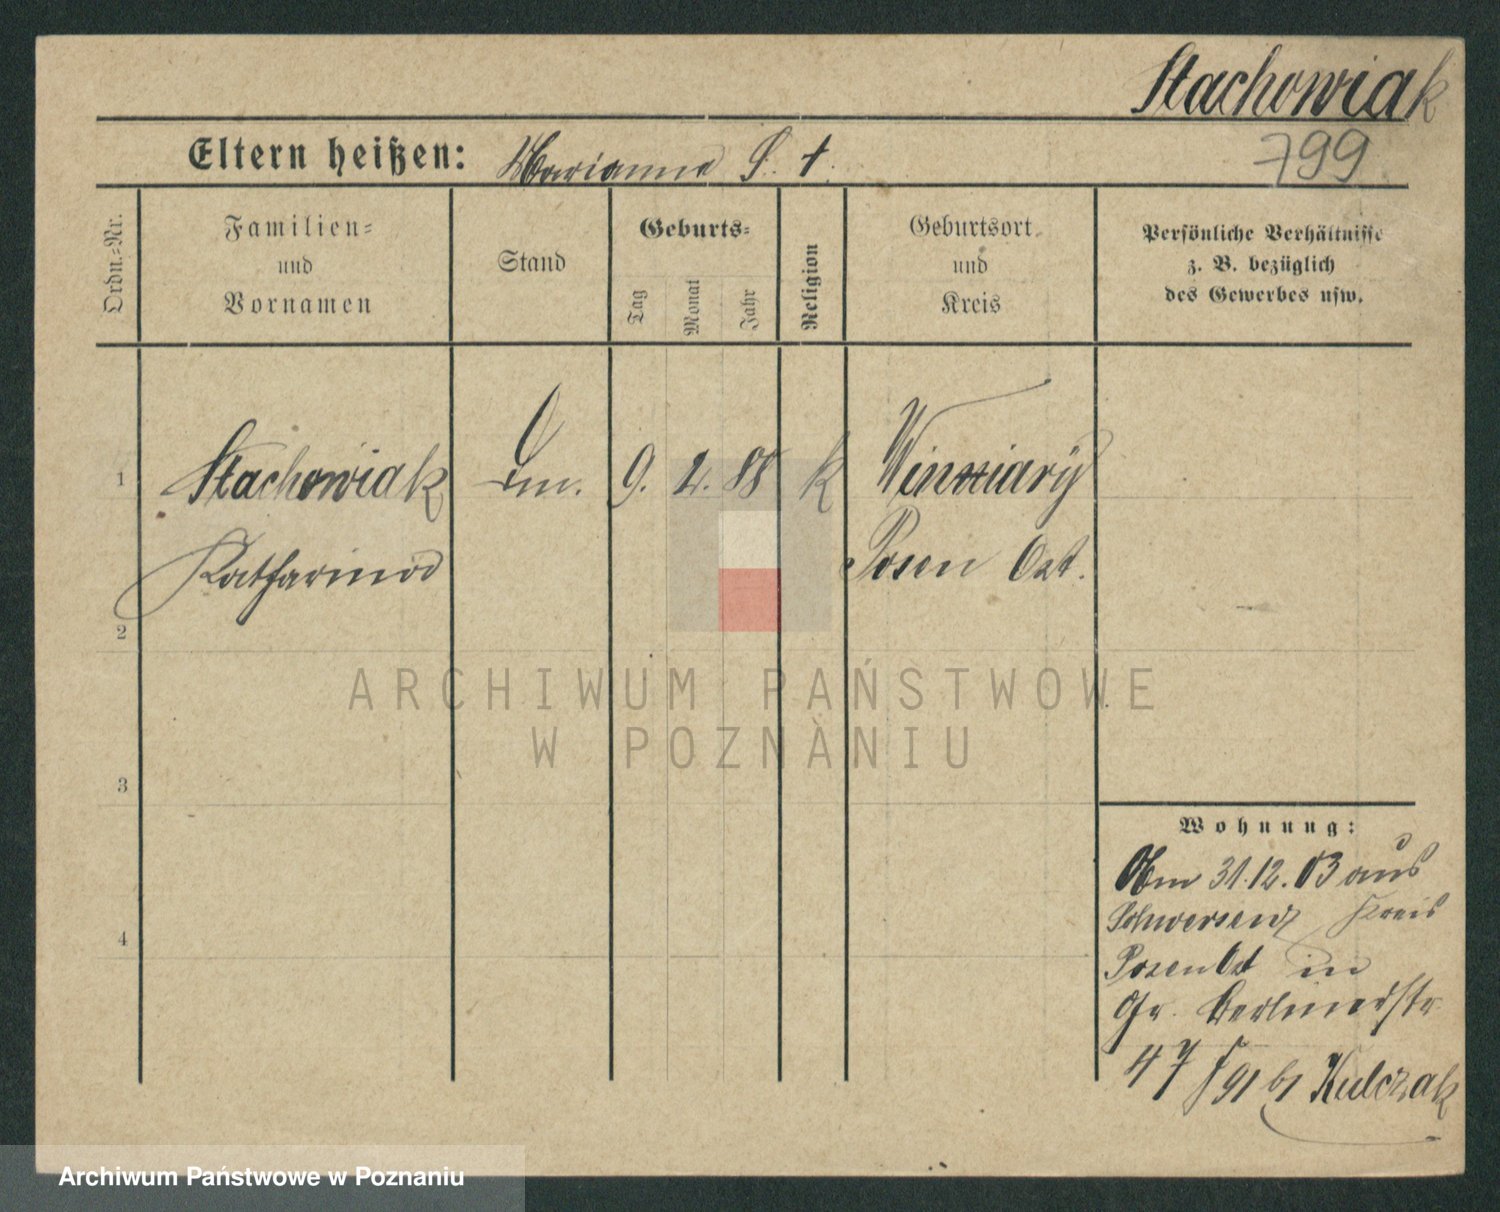 Stachowiak
799
Eltern heißen: Marianna S. †.
Ordn.=Nr.
Familien=
und
Vornamen
Stand
Geburts=
Tag
Monat
Jahr
Religion
Geburtsort
und
Kreis
Persönliche Verhältnisse
z. B. bezüglich
des Gewerbes usw.
1
Stachowiak
9. 2. 88
k
Winiary
Katharina
Posen Ost.
2
3
4
ARCHIWUM PAŃSTWOWE
W POZNANIU
Wohnung:
Am 31.12.03 aus
Schwersenz Kreis
Posen Ost in
Gr. Berlinerstr.
47 bei Kulczak
Archiwum Państwowe w Poznaniu